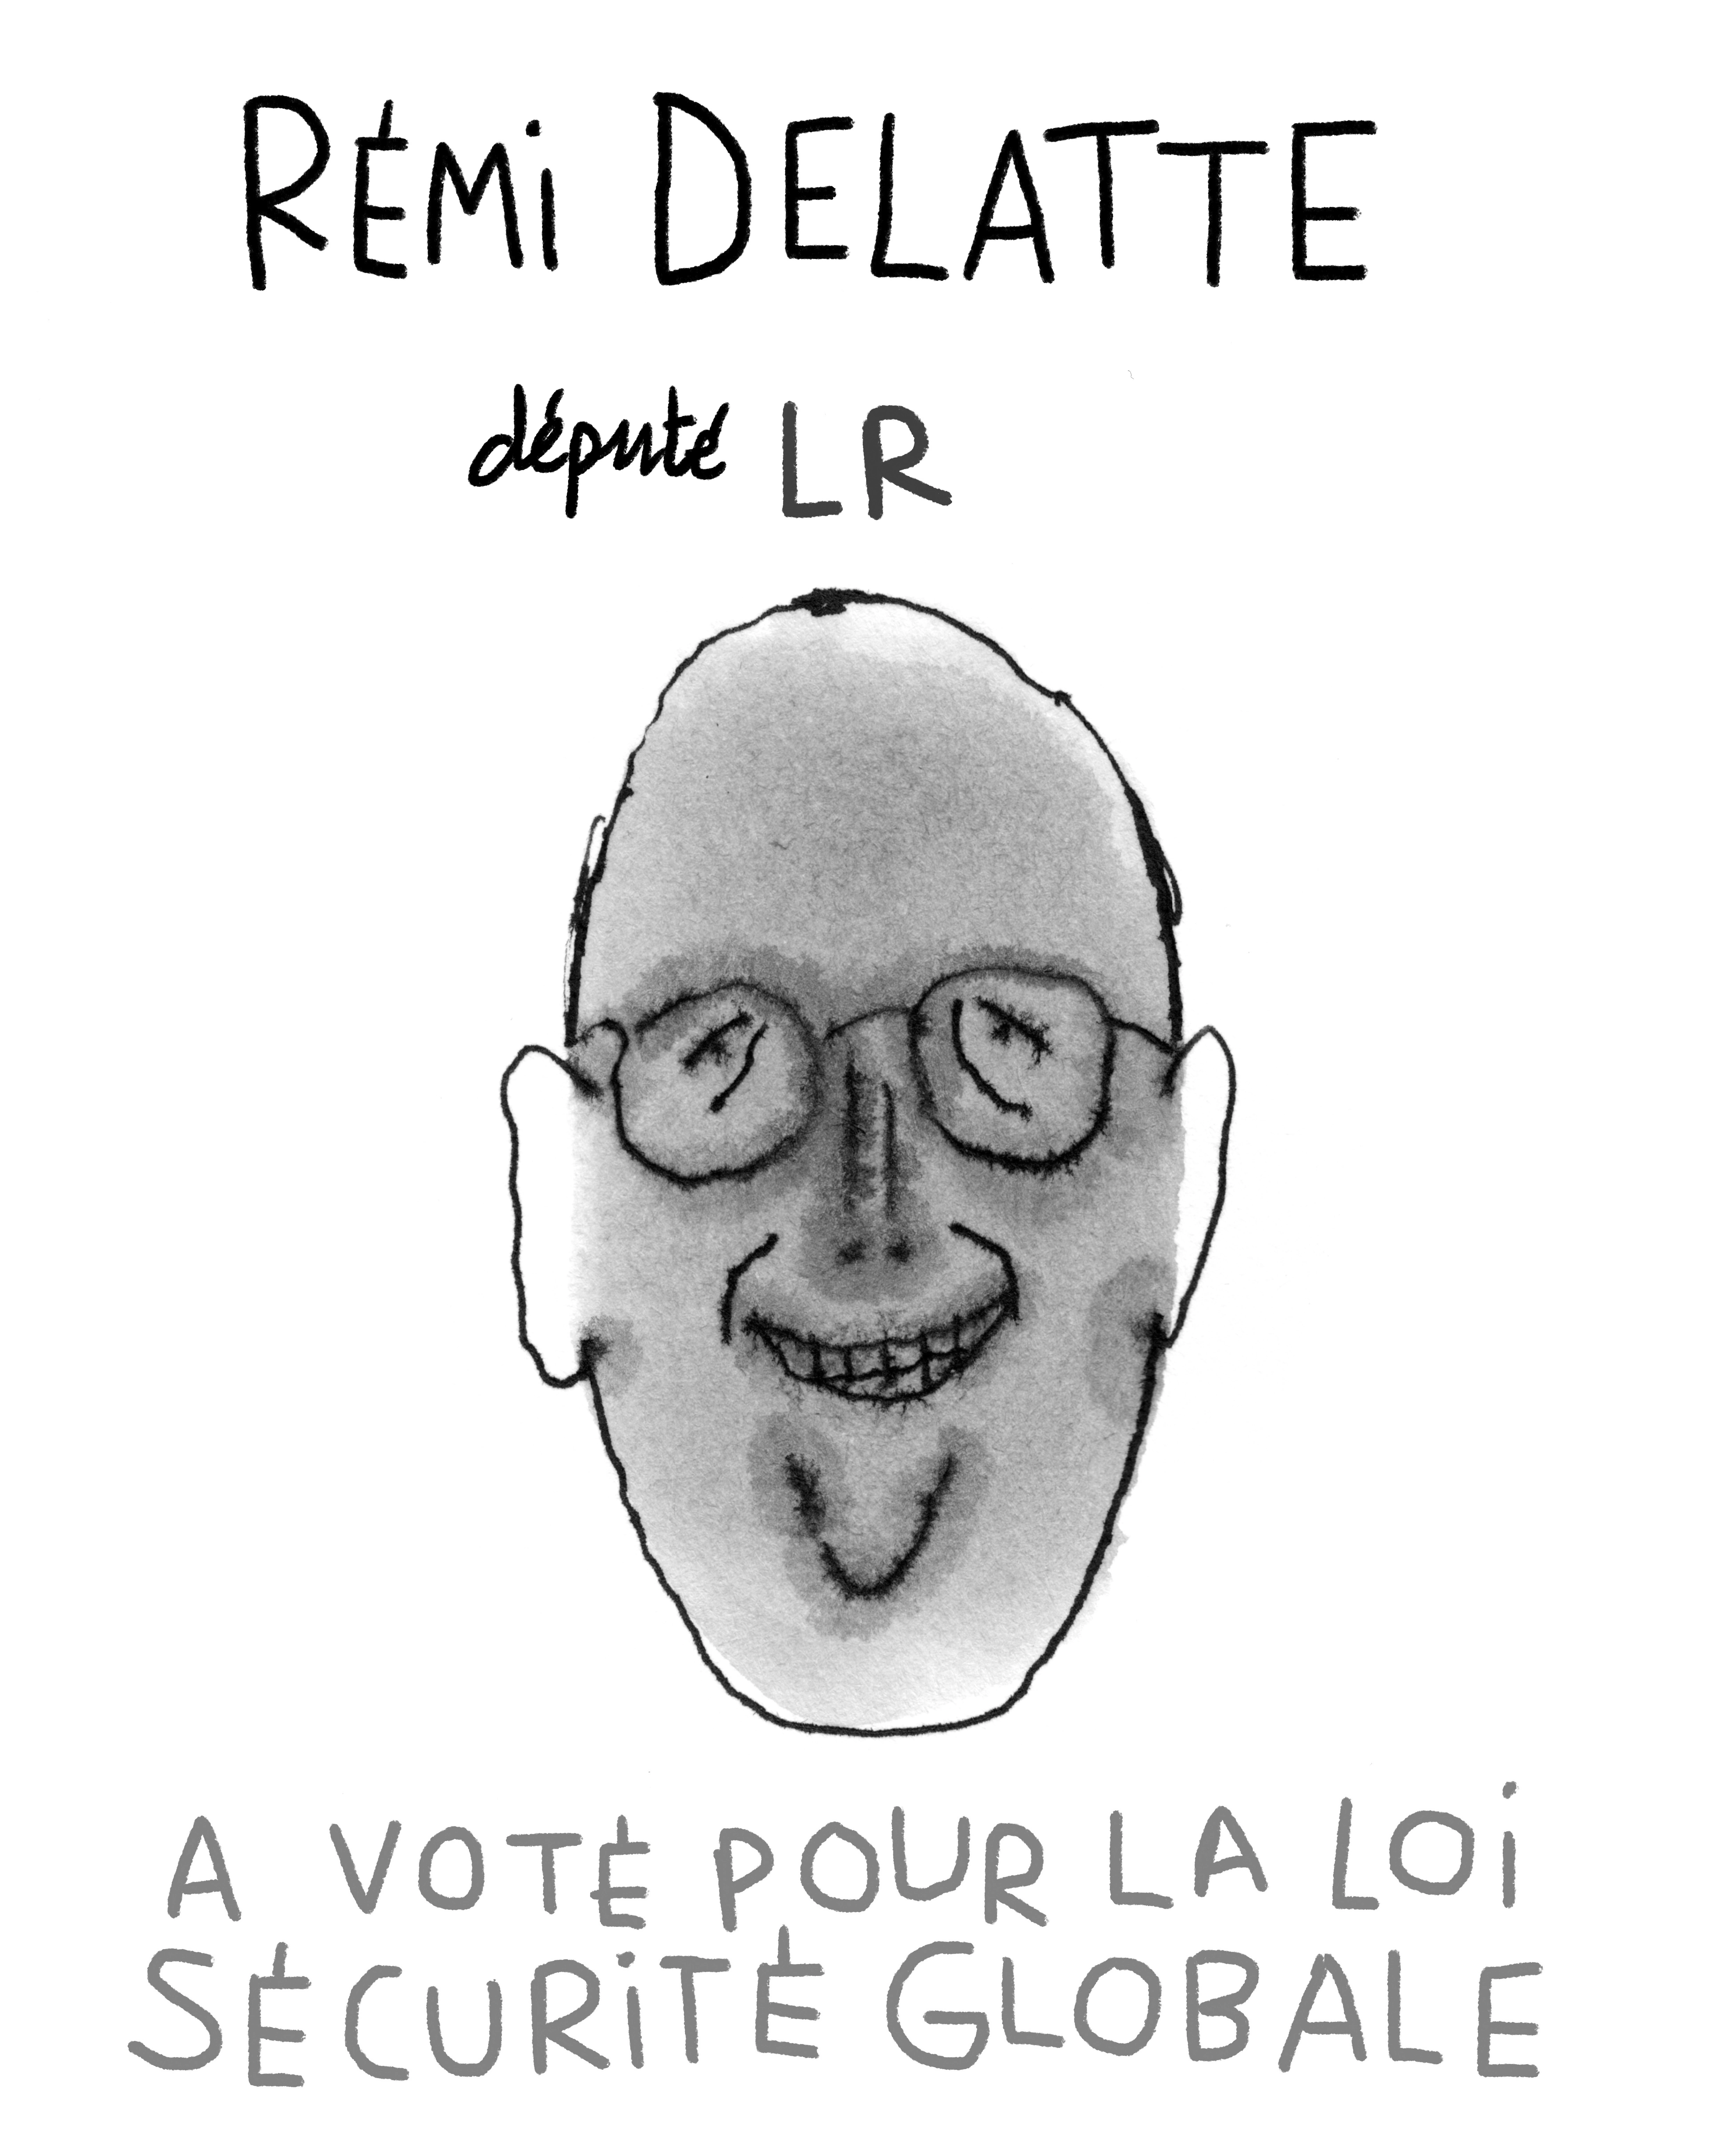 RÉMi DELATTE
député LR
A VOTÉ POUR LA LOi
SÉCURiTÉ GLOBALE